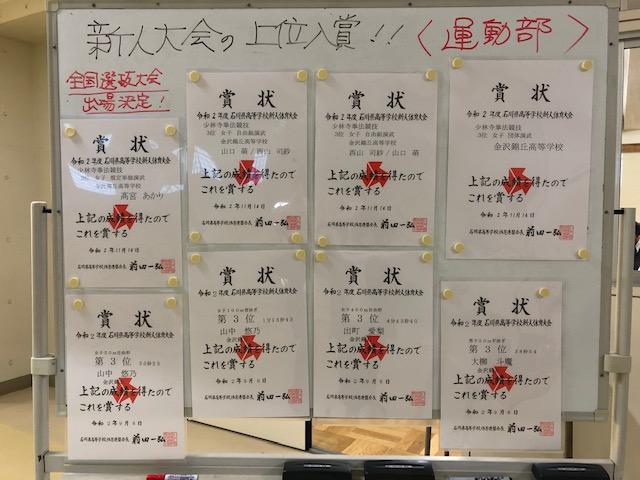 新人大会の上位入賞!!
<運動部>
全国選抜大会
出場決定!
賞状
令和2年度 石川県高等学校新人体育大会
少林寺拳法競技
3位 女子 規定単独演武
金沢錦丘高等学校
髙宮 あかり
上記の成績を得たので
これを賞する
令和2年11月14日
石川県高等学校体育連盟会長 前田一弘
賞状
令和2年度 石川県高等学校新人体育大会
少林寺拳法競技
3位 女子 自由組演武
金沢錦丘高等学校
山口 萌 / 西山 司紗
上記の成績を得たので
これを賞する
令和2年11月14日
石川県高等学校体育連盟会長 前田一弘
賞状
令和2年度 石川県高等学校新人体育大会
少林寺拳法競技
3位 女子 自由組演武
金沢錦丘高等学校
西山 司紗 / 山口 萌
上記の成績を得たので
これを賞する
令和2年11月14日
石川県高等学校体育連盟会長 前田一弘
賞状
令和2年度 石川県高等学校新人体育大会
少林寺拳法競技
3位 女子 団体演武
金沢錦丘高等学校
上記の成績を得たので
これを賞する
令和2年11月14日
石川県高等学校体育連盟会長 前田一弘
賞状
令和2年度 石川県高等学校新人体育大会
第3位
山中 悠乃
上記の成績を得たので
これを賞する
令和2年9月6日
石川県高等学校体育連盟会長 前田一弘
賞状
令和2年度 石川県高等学校新人体育大会
第3位
山中 悠乃
上記の成績を得たので
これを賞する
令和2年9月6日
石川県高等学校体育連盟会長 前田一弘
賞状
令和2年度 石川県高等学校新人体育大会
第3位
出町 愛梨
上記の成績を得たので
これを賞する
令和2年9月6日
石川県高等学校体育連盟会長 前田一弘
賞状
令和2年度 石川県高等学校新人体育大会
第3位
大柳 斗魔
上記の成績を得たので
これを賞する
令和2年9月6日
石川県高等学校体育連盟会長 前田一弘